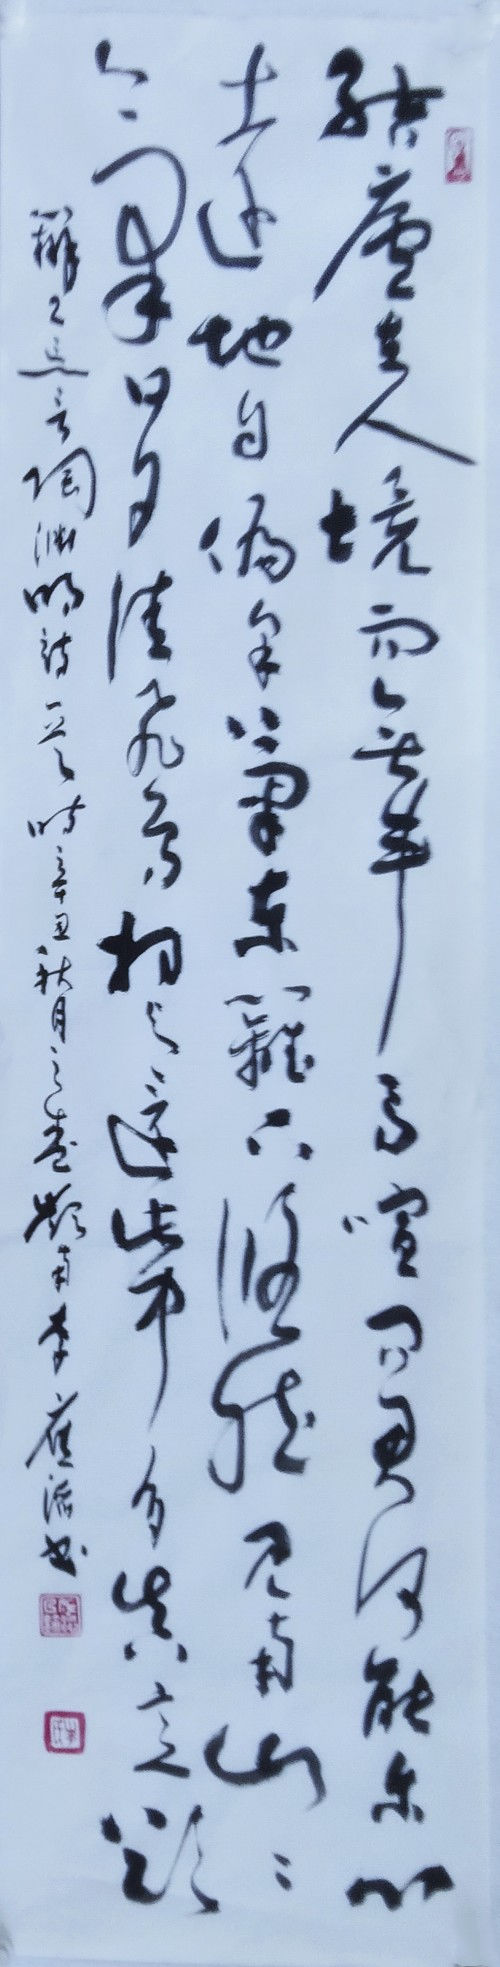 結廬在人境而無車馬喧問君何能尔心
遠地自偏采菊東籬下悠然見南山〻
氣日夕佳飛鳥相與還此中有真意欲
辨已忘言陶淵明詩一首時辛丑秋月之南李應书